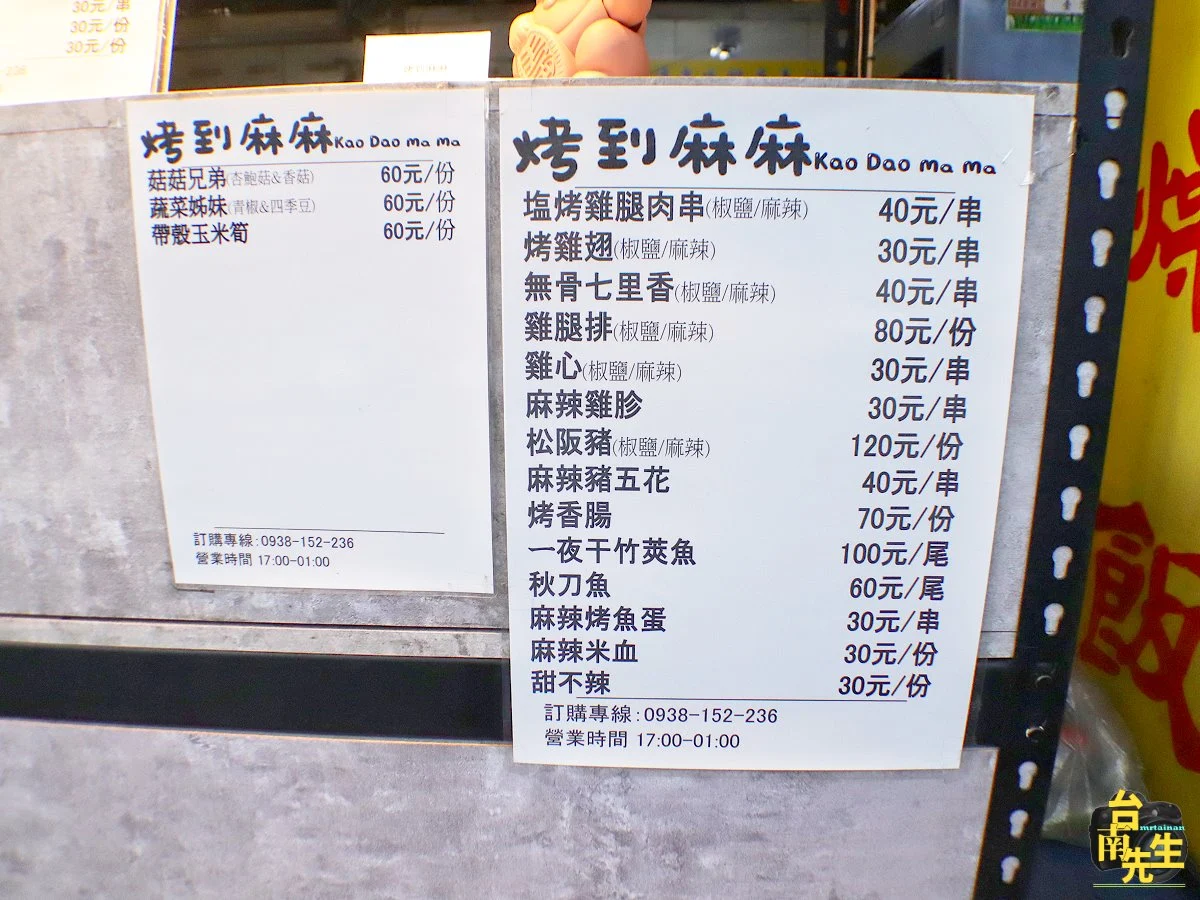 30元/串
30元/份
30元/份
236
烤到麻麻Kao Dao ma ma
菇菇兄弟(杏鮑菇&香菇) 60元/份
蔬菜姊妹(青椒&四季豆) 60元/份
帶殼玉米筍 60元/份
訂購專線:0938-152-236
營業時間 17:00-01:00
烤到麻麻Kao Dao ma ma
塩烤雞腿肉串(椒鹽/麻辣) 40元/串
烤雞翅(椒鹽/麻辣) 30元/串
無骨七里香(椒鹽/麻辣) 40元/串
雞腿排(椒鹽/麻辣) 80元/份
雞心(椒鹽/麻辣) 30元/串
麻辣雞胗 30元/串
松阪豬(椒鹽/麻辣) 120元/份
麻辣豬五花 40元/串
烤香腸 70元/份
一夜干竹莢魚 100元/尾
秋刀魚 60元/尾
麻辣烤魚蛋 30元/串
麻辣米血 30元/份
甜不辣 30元/份
訂購專線:0938-152-236
營業時間 17:00-01:00
飯
台南先生
mrtainan